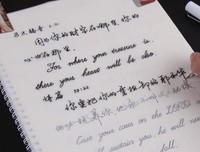 马太福音 6:21
因为你的财宝在哪里，你的
心也在那里。
For where your treasure is,
there your heart will be also.
诗篇 55:22
你要把你的重担卸给耶和华
Cast your cares on the LORD
sustain you; he will never
fall.